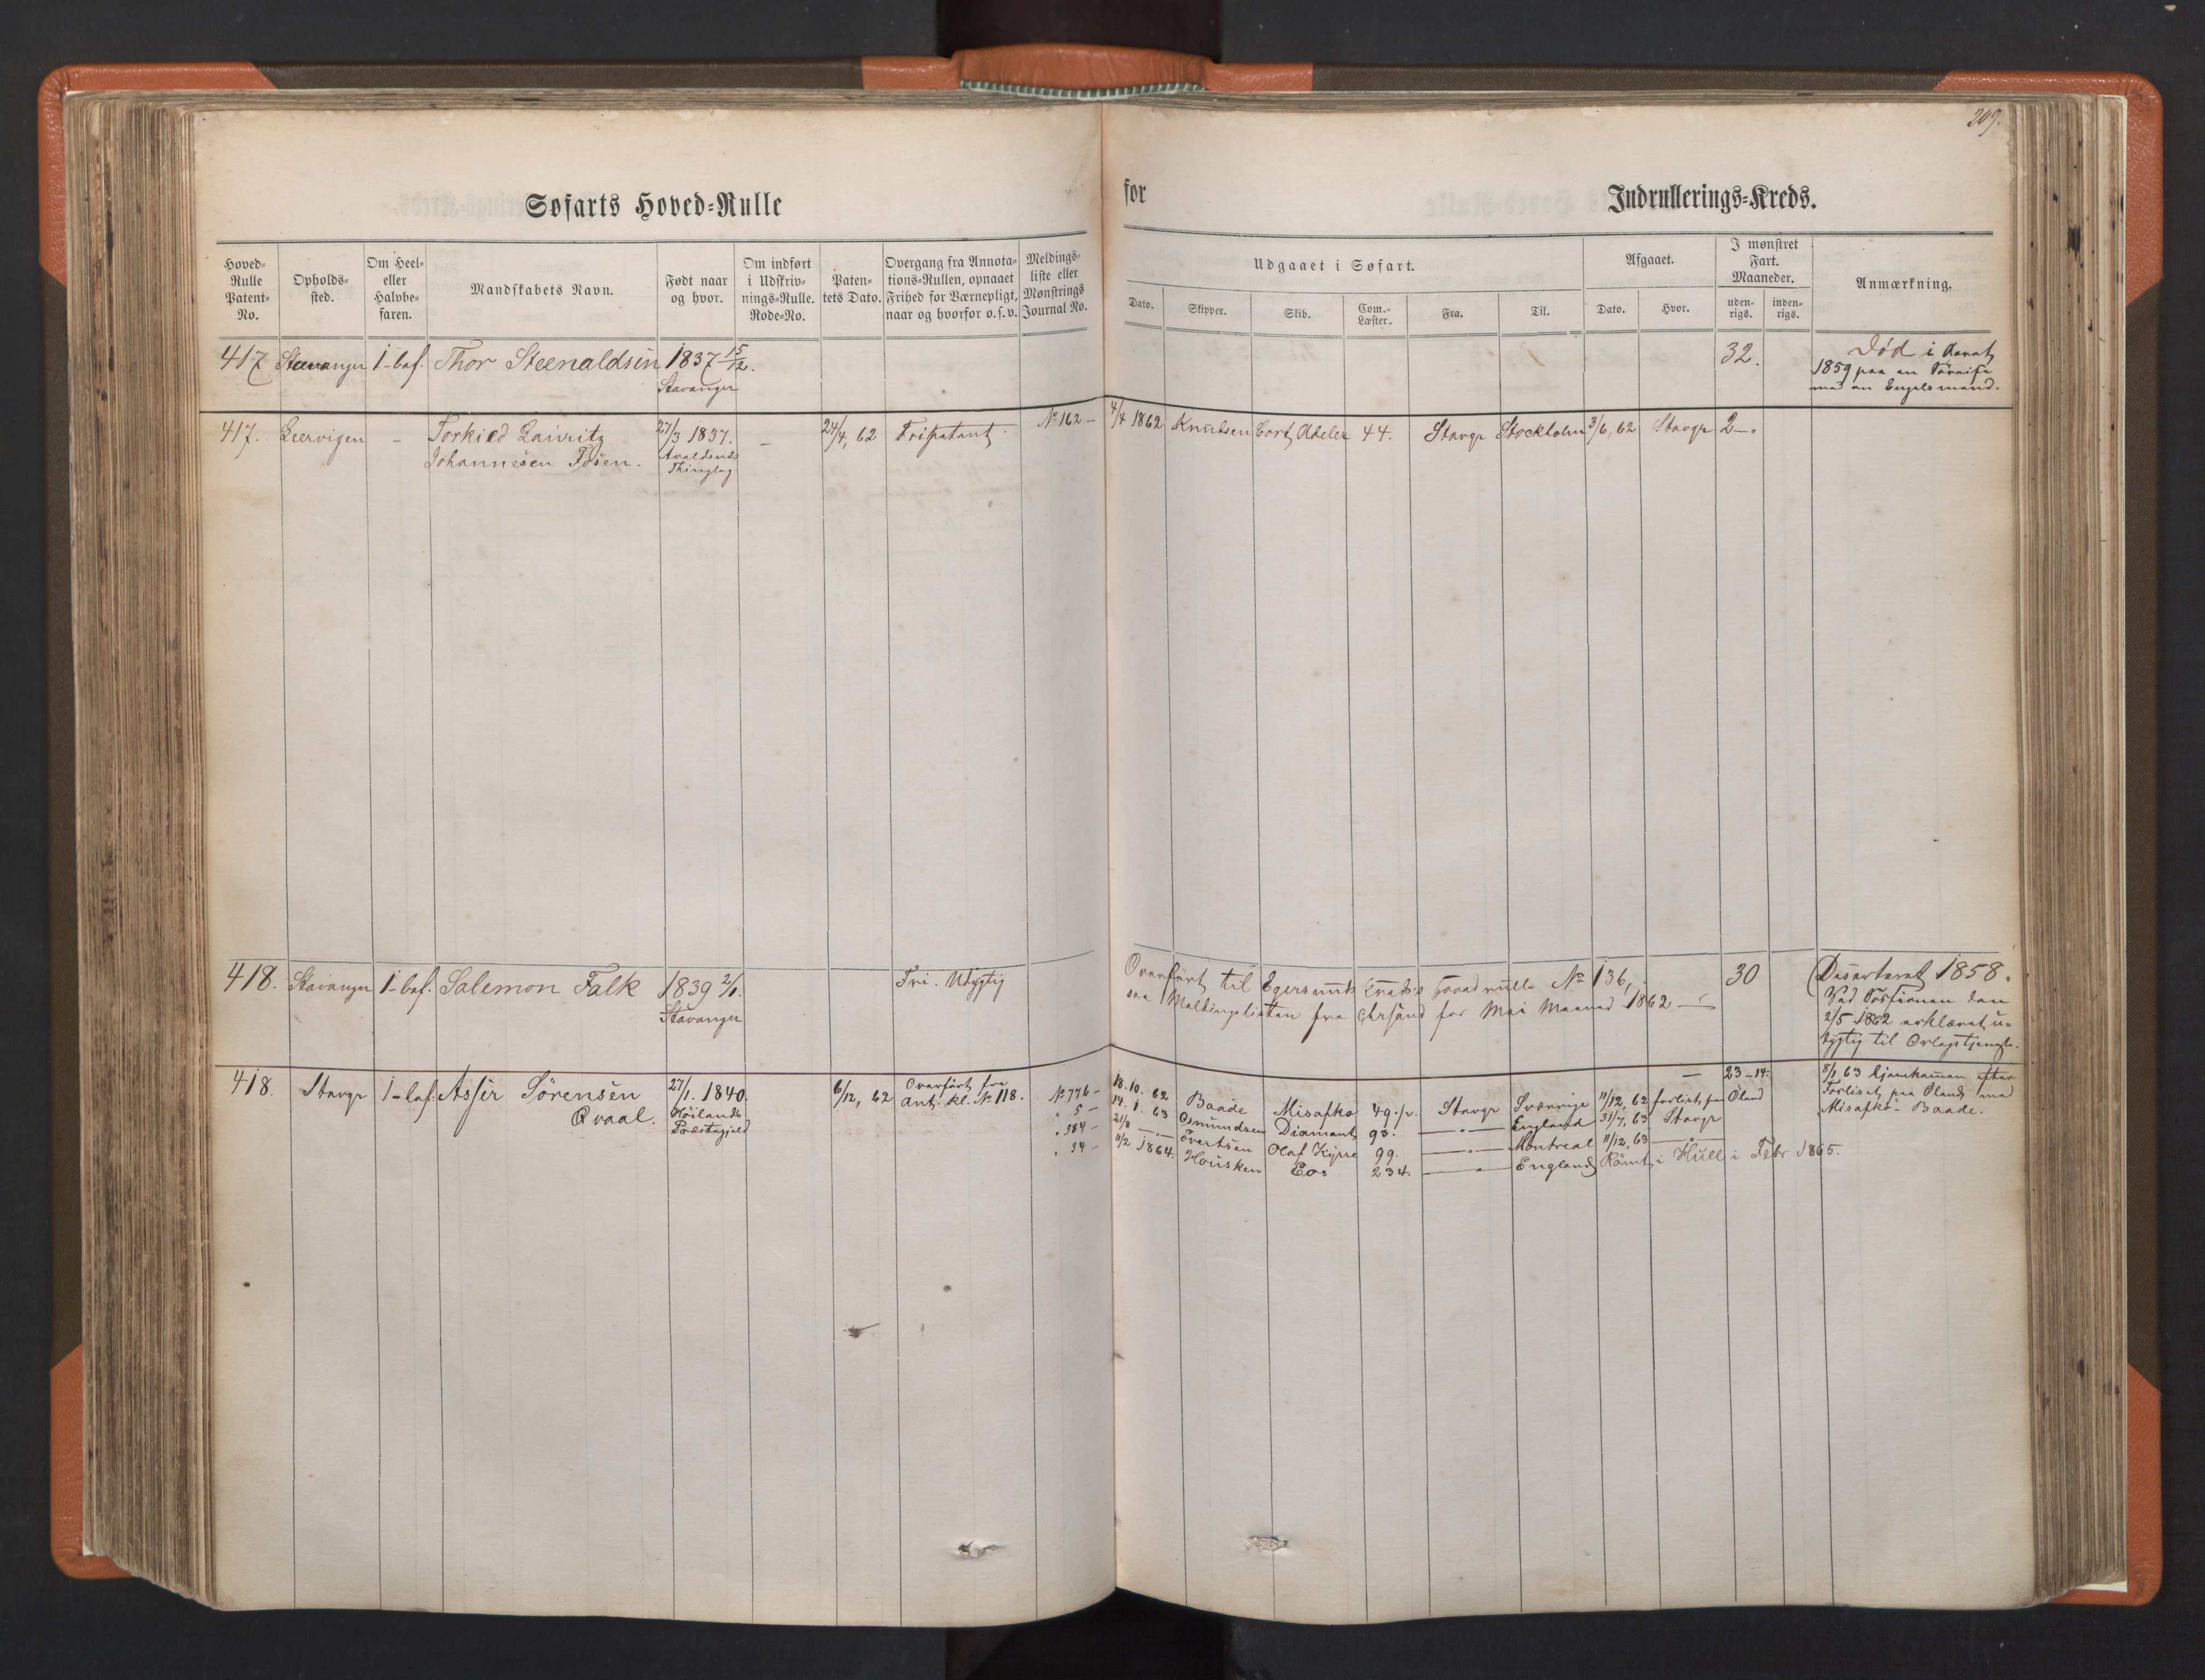 209.
Søfarts Hoved=Rulle
for
Indrullerings=Kreds.
Hoved=Rulle Patent=No.
Opholds=sted.
Om Heel= eller Halvbe=faren.
Mandskabets Navn.
Født naar og hvor.
Om indført i Udskriv=nings=Rulle. Rode=No.
Paten=tets Dato.
Overgang fra Annota=tions=Rullen, opnaaet Frihed for Værnepligt, naar og hvorfor o.s.v.
Meldings=liste eller Mønstrings Journal No.
Udgaaet i Søfart.
Afgaaet.
I mønstret Fart. Maaneder.
Anmærkning.
Dato. Skipper. Skib. Com.=Læster. Fra. Til. Dato. Hvor. uden=rigs. inden=rigs.
417 Stavanger 1-bef. Thor Steenaldsen 1837 15/12. 32. Død i
Stavanger 1859 paa en
med en Engelsmand.
417. Leervigen - Torkild Lauritz 27/3 1837. - 24/4, 62 Fripatent No 162 - 4/4 1862 Knudsen Cort Adeler 44. Stavgr Stockholm 3/6, 62 Stavgr 2 -.
Johannesen Tosen. Avaldsnds
Thinglag
418. Stavanger 1-bef. Salemon Falk 1839 2/1. Fri. Udygtig Overført til Egersunds Kreds's Hovedrulle No 136, 30 Deserteret 1858.
Stavanger Meldingslisten fra Chrsand for Mai Maaned 1862 Ved Sessionen den
2/5 1862 erklæret u=
dygtig til Orlogstjeneste.
418. Stavgr 1-bef. Asser Sörensen 27/1. 1840. 6/12, 62 Overført fra No 776 - 18. 10. 62 Baade Misafko 49 Stavgr Sverrige 11/12, 62 forlist paa Øland - 23-14. 8/1 63 hjemkommen efter
Qvaal. Höilands Ant. kl. No 118. " 5 - 14. 1. 63 Osmundsen Diamant 93. —"— England 31/7, 63 Stavgr Forliset paa Øland med
Præstegjeld " 384 - 21/8 —"— Evertsen Olaf Kyrre 99. —"— Montreal 11/12, 63 —"— Misafko - Baade.
" 34 - 11/2 1864. Housken Eos 234. —"— England Römt i Hull i Febr 1865.